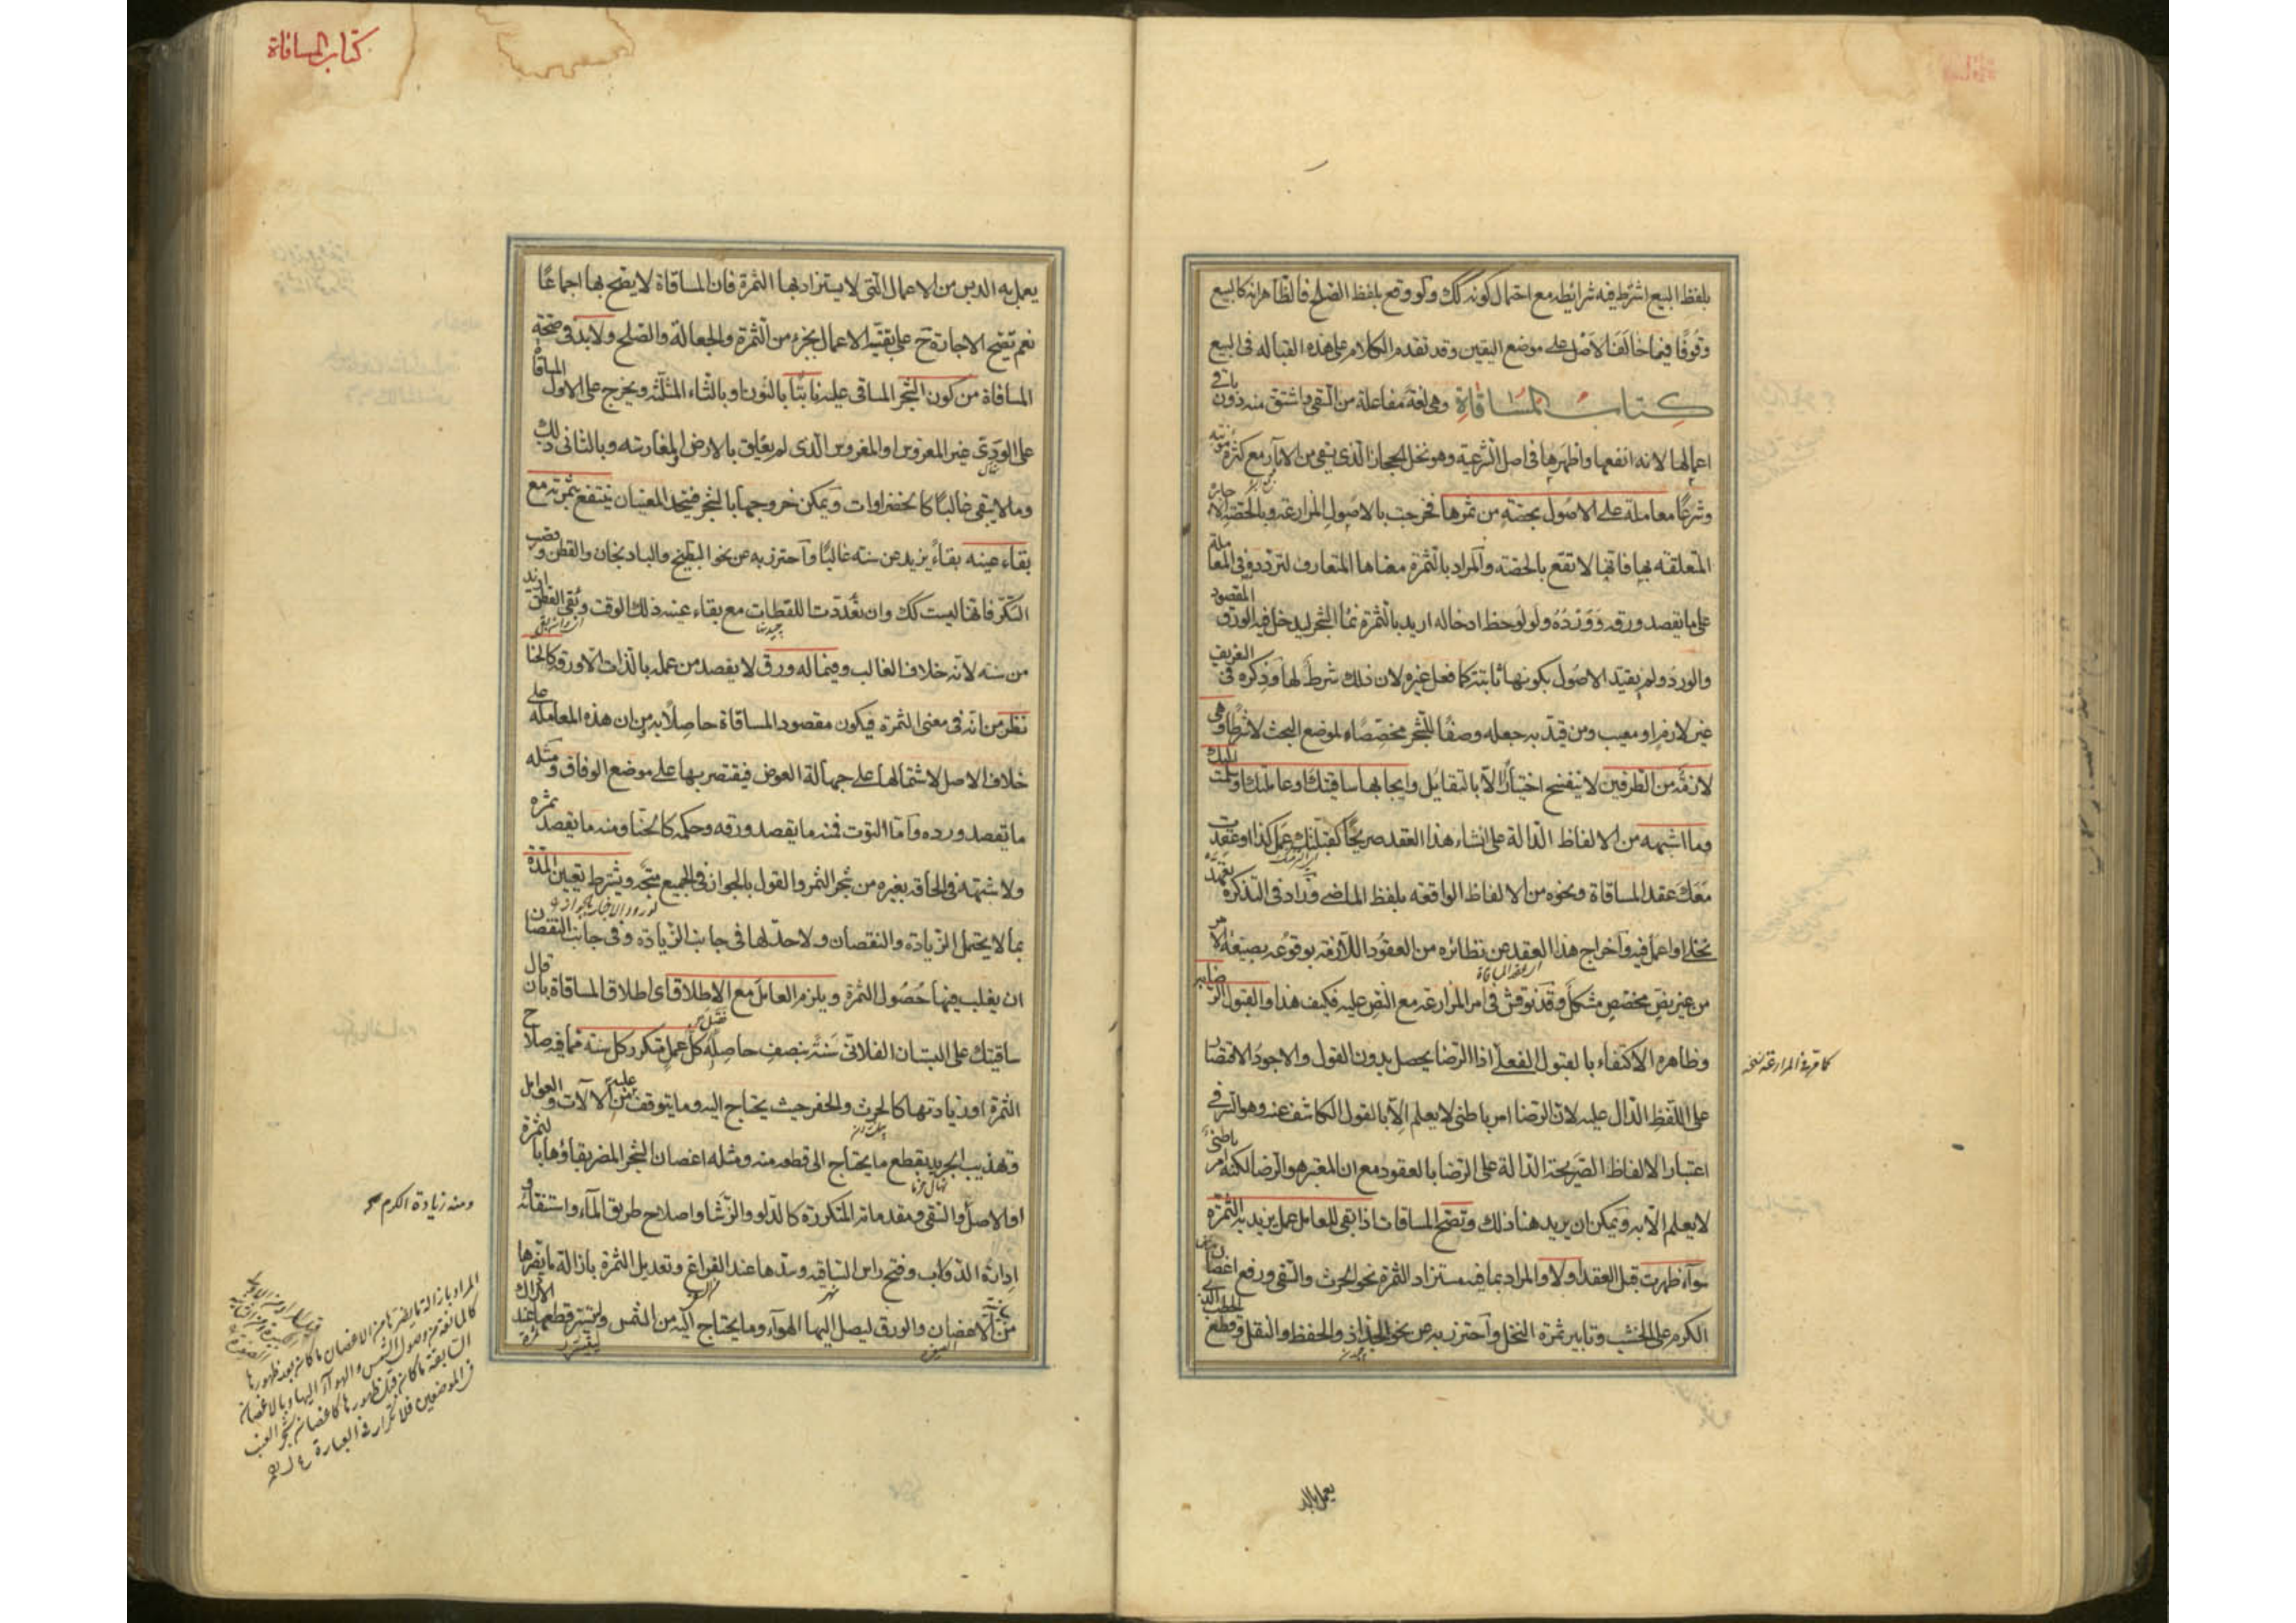 بلفظ البيع اشترط فيه شرائطه مع احتمال كونه كك ولو وقع بلفظ الصلح فالظاهر انه كالبيع
وقوفا فيما خالف الاصل على موضع اليقين وقد تقدم الكلام على هذه القبالة فى البيع
كتاب المساقاة وهى لغة مفاعلة من السقى واشتق منه دون باقى
اعمالها لانه انفعها واظهرها فى اصل الشرعية وهو نخل الحجاز الذى يسقى من الابار مع كثرة مؤنته
وشرعا معاملة على الاصول بحصة من ثمرها فخرجت بالاصول المزارعة وبالحصة الاجارة
المتعلقة بها فانها لا تقع بالحصة والمراد بالثمرة معناها المتعارف لتردده فى المعاملة
على ما يقصد ورقه وورده ولو لوحظ ادخاله اريد بالثمرة نماء الشجر ليدخل فيه الورق المقصود
والورد ولم يقيد الاصول بكونها ثابتة كما فعل غيره لان ذلك شرط لها وذكره فى التعريف
غير لازم او معيب ومن قيد به جعله وصفا للشجر مخصصا لموضع البحث لا شرطا وهى
لازمة من الطرفين لا تنفسخ اختيارا الا بالتقايل وايجابها ساقيتك او عاملتك او سلمت اليك
وما اشبهه من الالفاظ الدالة على انشاء هذا العقد صريحا كقبلتك عمل كذا او عقدت
معك عقد المساقاة ونحوه من الالفاظ الواقعة بلفظ الماضى وزاد فى التذكرة تعهد
نخلى او اعمل فيه واخراج هذا العقد عن نظائره من العقود اللازمة بوقوعه بصيغة الامر
من غير نص مخصص مشكل وقد نوقش فى امر المزارعة مع النص عليه فكيف هذا والقبول الرضا به
وظاهره الاكتفاء بالقبول الفعلى اذا الرضا يحصل بدون القول والاجود الاقتصار
على اللفظ الدال عليه لان الرضا امر باطنى لا يعلم الا بالقول الكاشف عنه وهو السر فى
اعتبار الالفاظ الصريحة الدالة على الرضا بالعقود مع ان المعتبر هو الرضا لكنه امر باطنى
لا يعلم الا به ويمكن ان يريد هنا ذلك وتصح المساقات اذا بقى للعامل عمل يزيد به الثمرة
سواء ظهرت قبل العقد او لا والمراد بما فيه مستزاد الثمرة نحو الحرث والسقى ورفع اغصان
الكرم على الخشب وتابير ثمرة النخل واحترز به عن نحو الجذاذ والحفظ والنقل وقطع الحطب الذى
كما مر فى المزارعة نسخه
يعمل به الد
كتاب المساقاة
يعمل به الدبس من الاعمال التى لا يستزاد بها الثمرة فان المساقاة لا يصح بها اجماعا
نعم تصح الاجارة ح على بقية الاعمال بجزء من الثمرة والجعالة والصلح ولا بد فى صحة
المساقاة من كون الشجر المساقى عليه نابتا بالنون او بالثاء المثلثة ويخرج على الاول المساقاة
على الودى غير المغروس او المغروس الذى لم يعلق بالارض او المغارسة وبالثانى ذلك
وما لا يبقى غالبا كالخضراوات ويمكن خروجها بالشجر فيتحد المعنيان ينتفع بثمرته مع
بقاء عينه بقاء يزيد عن سنة غالبا واحترز به عن نحو البطيخ والباذنجان والقطن وقصب
السكر فانها ليست كك وان تعددت اللقطات مع بقاء عينه ذلك الوقت وبقى القطن ازيد
من سنة لانه خلاف الغالب وفيما له ورق لا يقصد من عمله بالذات الا ورقه كالحنا
نظر من انه فى معنى الثمرة فيكون مقصود المساقاة حاصلا به ومن ان هذه المعاملة على
خلاف الاصل لاشتمالها على جهالة العوض فيقتصر بها على موضع الوفاق ومثله
ما يقصد ورده واما التوت فمنه ما يقصد ورقه وحكمه كالحنا ومنه ما يقصد ثمره
ولا شبهة فى الحاقه بغيره من شجر الثمر والقول بالجواز فى الجميع متجه ويشترط تعيين المدة
بما لا يحتمل الزيادة والنقصان ولا حد لها فى جانب الزيادة وفى جانب النقصان
ان يغلب فيها حصول الثمرة ويلزم العامل مع الاطلاق اى اطلاق المساقاة بان قال
ساقيتك على البستان الفلانى سنة بنصف حاصله كل عمل متكرر كل سنة مما فيه صلاح
الثمرة او زيادتها كالحرث والحفر حيث يحتاج اليه وما يتوقف عليه من الالات والعوامل
وتهذيب الجريد بقطع ما يحتاج الى قطعه منه ومثله اغصان الشجر المضر بقاؤها بالثمرة
او الاصل والسقى ومقدماته المتكررة كالدلو والرشا واصلاح طريق الماء واستنقائه و
ادارة الدولاب وفتح راس الساقية وسدها عند الفراغ وتعديل الثمرة بازالة ما يضرها
من الاغصان والورق ليصل اليها الهواء وما يحتاج اليه من الشمس وليتيسر قطعها عند الادراك
ومنه زيادة الكرم
المراد بازالة ما يضرها من الاغصان ما كان بعد ظهورها
كالمانعة من وصول الشمس والهواء اليها وبالاغصان
السابقة ما كان قبل ظهورها كاغصان شجر العنب
فى الموضعين فلا تكرار فى العبارة